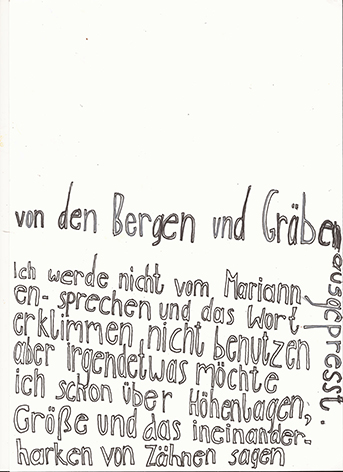 von den Bergen und Gräben
ausgepresst.
Ich werde nicht vom Mariann
en- sprechen und das Wort
erklimmen nicht benutzen
aber irgendetwas möchte
ich schon über Höhenlagen,
Größe und das ineinander-
harken von Zähnen sagen